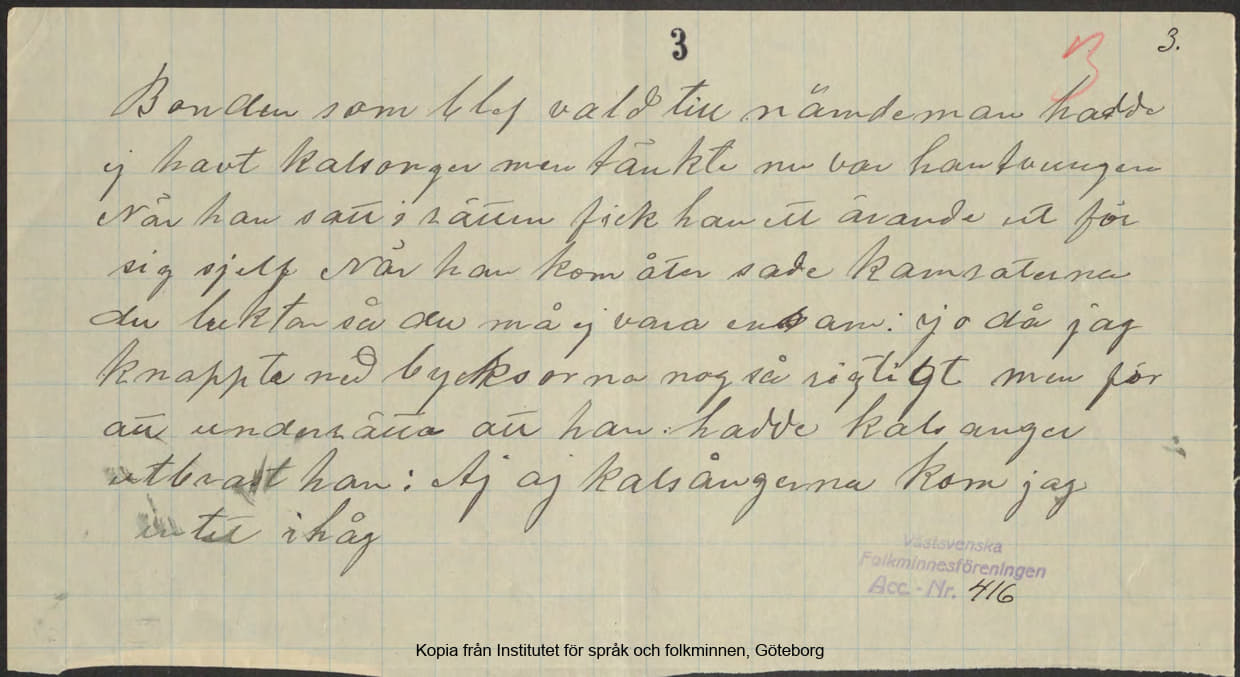 3
3
3.
Bonden som blef vald till nämdeman hadde
ej havt kalsonger men tänkte nu var han tvungen
När han satt i rätten fick han ett ärande ut för
sig sjelf När han kom åter sade kamraterna
du luktar så du må ej vara ensam: jo då jag
knappte ned bycksorna nog så sigtigt men för
att undersätta att han hadde kalsanger
utbrast han: Aj aj kalsångerna kom jag
intet ihåg
Västsvenska
Folkminnesföreningen
Acc.-Nr. 416
Kopia från Institutet för språk och folkminnen, Göteborg